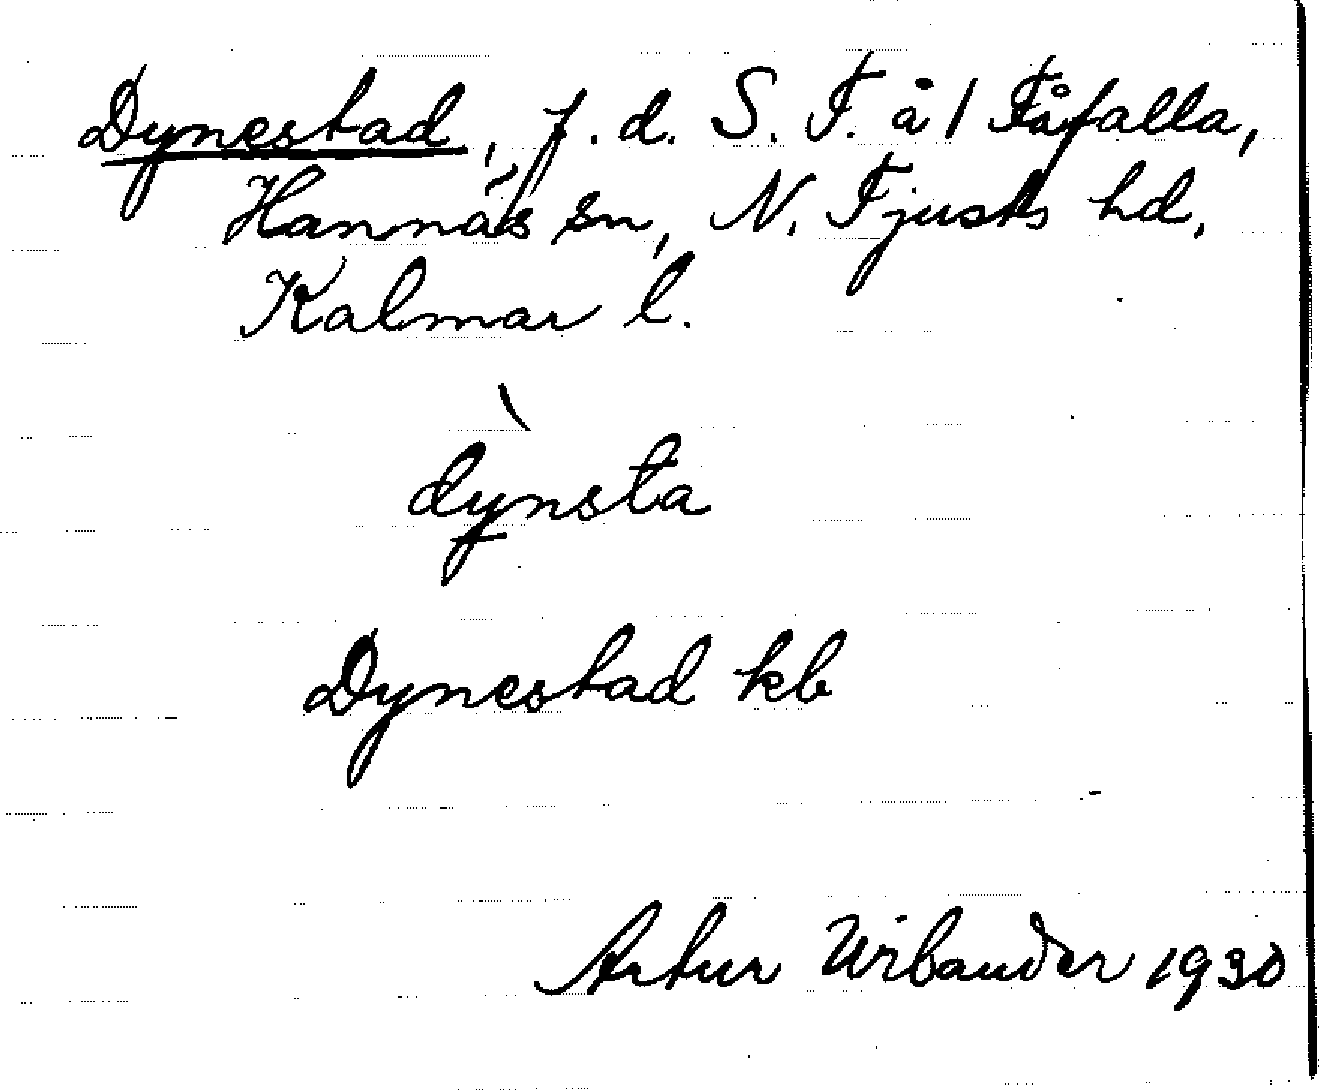 Dynestad, f. d. S. T. å / Tåfalla,
Hannäs sn, N. Tjusts hd,
Kalmar l.
dỳnsta
Dynestad kb
Artur Urbander 1930